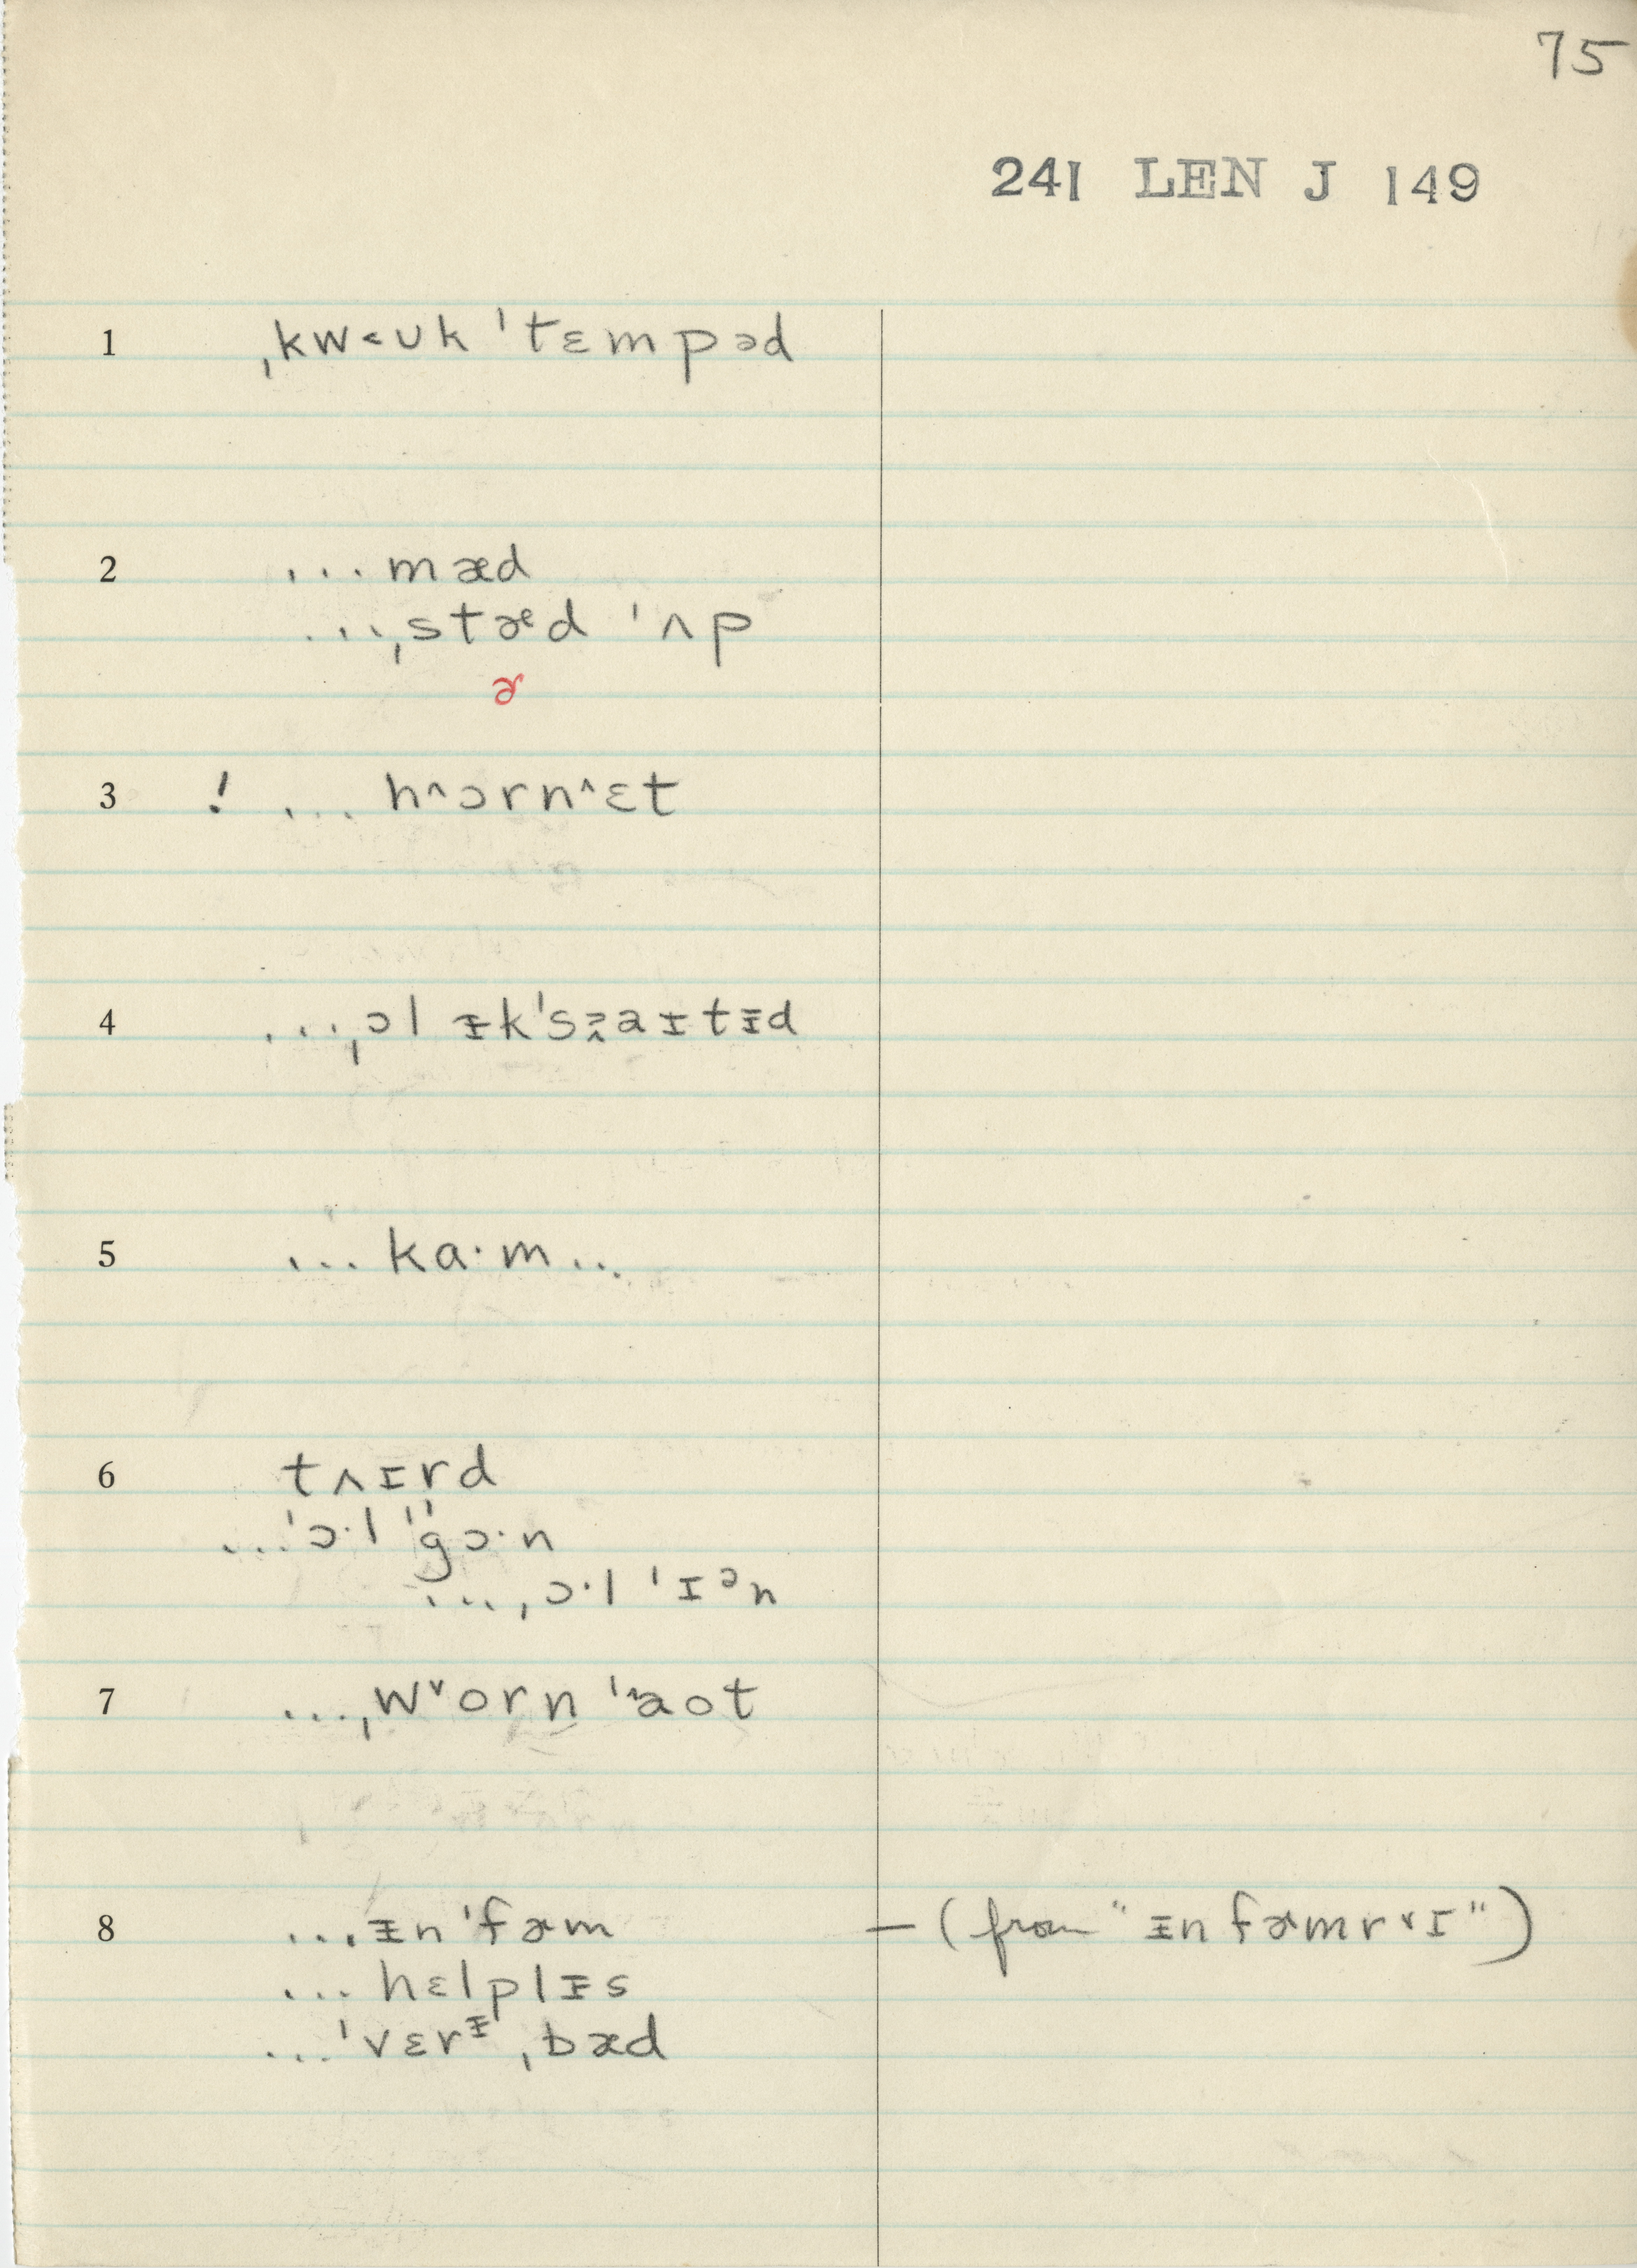 75
241 LEN J 149
1 ˌkw˂ʊk ˈtɛmpəd
2 ...mæd
...ˌstæᵉd ˈʌp
ɚ
3 ! ... h^ɔrn^ɛt
4 ...ˌɔl ᵻkˈsaɪtᵻd
5 ... ka·m...
6 tʌɪrd
...ˈɔ·l ˈˈgɔ·n
...ˌɔ·l ˈɪᵊn
7 ...ˌw˅orn ˈaot
8 ...ᵻn ˈfæm — (from "ᵻn fæmr˅ɪ")
... hɛlplᵻs
...ˈvɛrᵻ ˌbæd